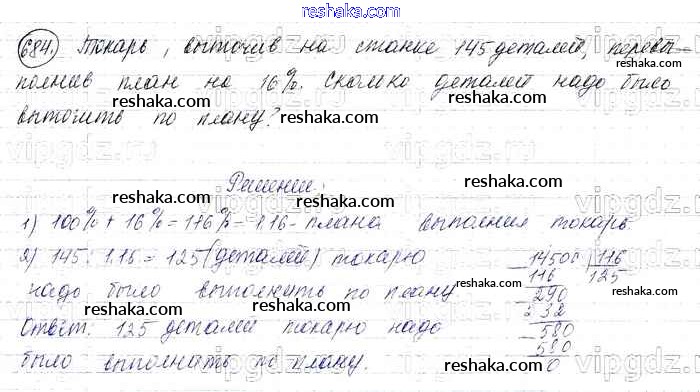 reshaka.com
684. Токарь, выточив на станке 145 деталей, перевы-
полнив план на 16%. Сколько деталей надо было
выточить по плану?
Решение:
1) 100% + 16% = 116% = 1.16 - плана выполнил токарь.
2) 145 : 1.16 = 125 (деталей) токарю
надо было выполнить по плану
Ответ. 125 деталей токарю надо
было выполнить по плану.
14500 116
116 125
290
232
580
580
0
reshaka.com
reshaka.com
reshaka.com
reshaka.com
reshaka.com
reshaka.com
reshaka.com
reshaka.com
reshaka.com
reshaka.com